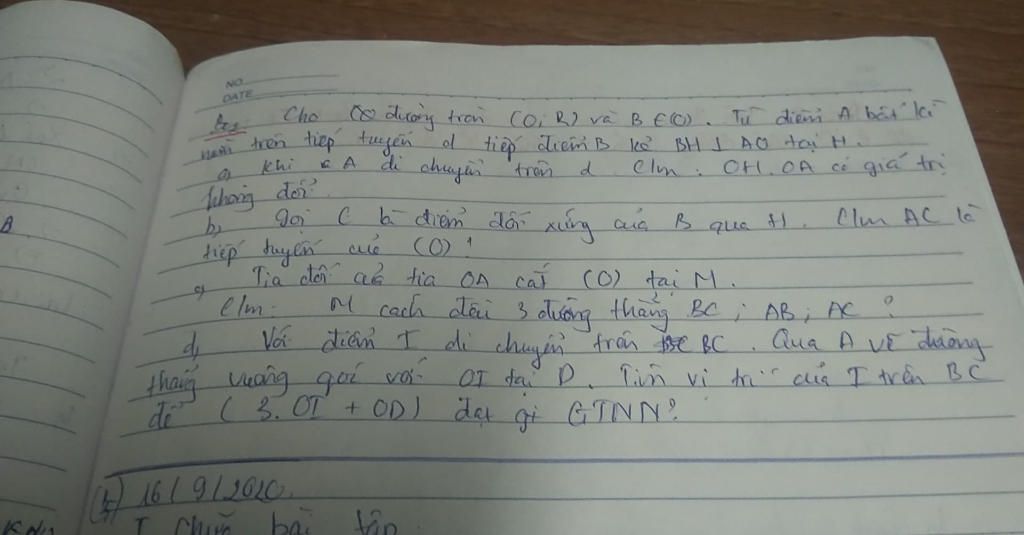 NO
DATE
Cho đường tròn (O; R) và B ∈ (O). Từ điểm A bất kì
nằm trên tiếp tuyến d tiếp điểm B kẻ BH ⊥ AO tại H.
a, Khi A di chuyển trên d C/m: OH.OA có giá trị
không đổi.
b, Gọi C là điểm đối xứng của B qua H. C/m AC là
tiếp tuyến của (O)!
c, Tia đối của tia OA cắt (O) tại M.
C/m: M cách đều 3 đường thẳng BC; AB; AC?
d, Với điểm I di chuyển trên BC. Qua A vẽ đường
thẳng vuông góc với OI tại D. Tìm vị trí của I trên BC
để (3.OI + OD) đạt gị GTNN?
16/9/2020.
I Chữa bài tập
A